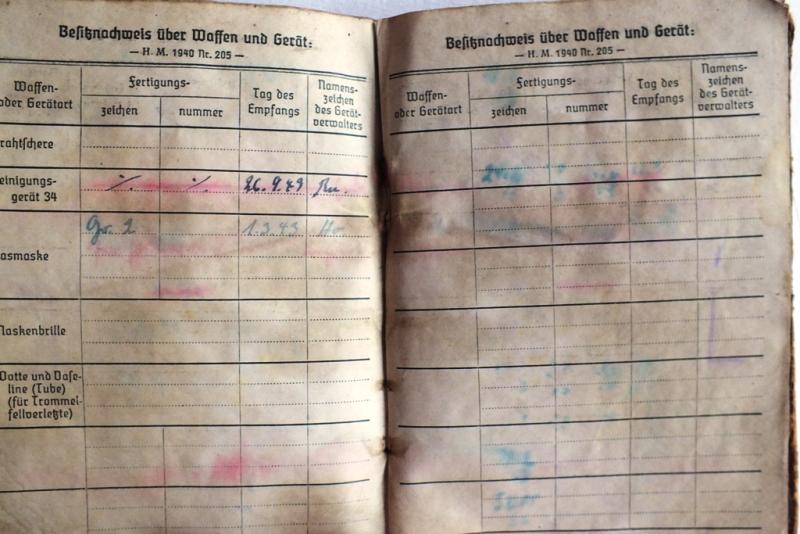 Besitznachweis über Waffen und Gerät:
— H. M. 1940 Nr. 205 —
Waffen- oder Gerätart
Fertigungs-
zeichen
nummer
Tag des Empfangs
Namens- zeichen des Gerät- verwalters
rahtschere
einigungs-
gerät 34
·/. ·/. 26.9.43
Gr. 2 1.3.43
asmaske
Maskenbrille
Watte und Vase-
line (Tube)
(für Trommel-
fellverletzte)
Besitznachweis über Waffen und Gerät:
— H. M. 1940 Nr. 205 —
Waffen- oder Gerätart
Fertigungs-
zeichen
nummer
Tag des Empfangs
Namens- zeichen des Gerät- verwalters